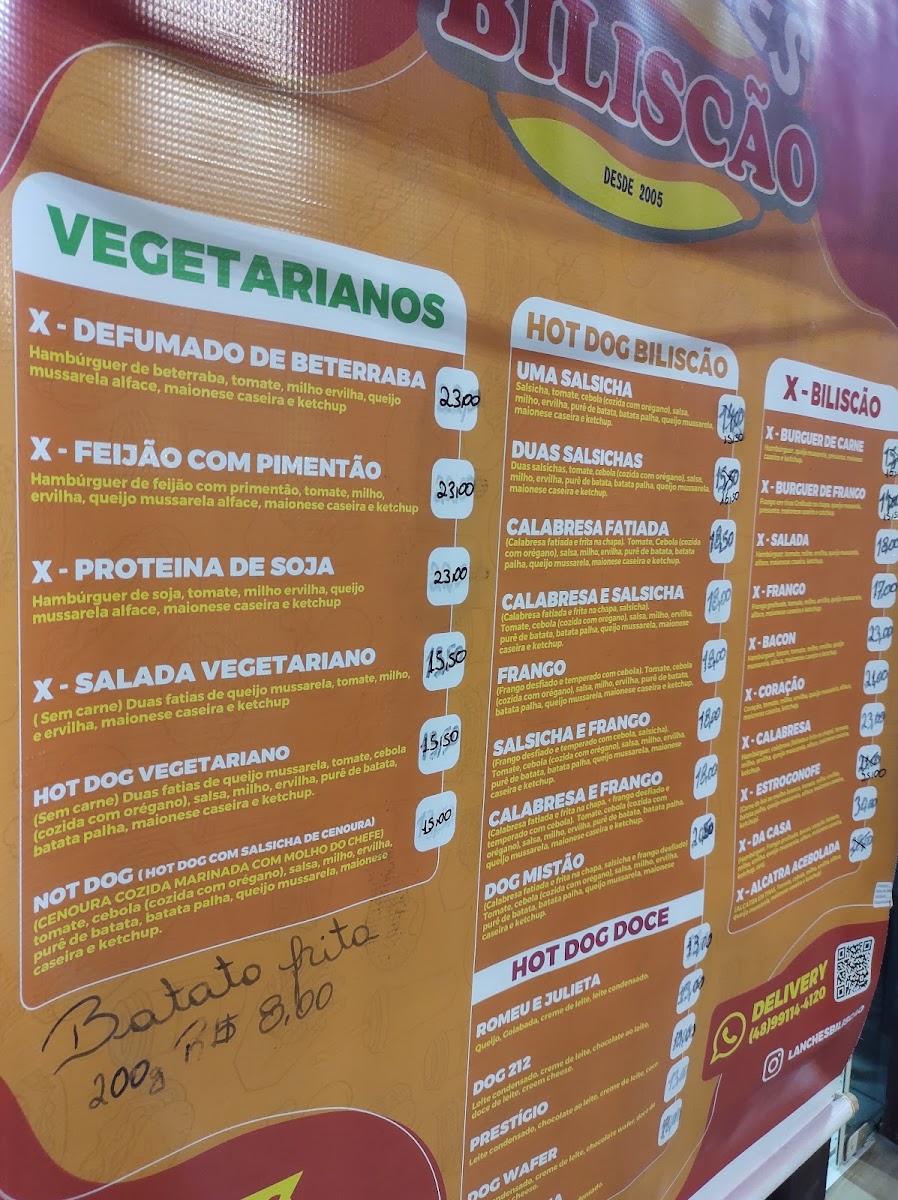 ES
BILISCÃO
DESDE 2005
VEGETARIANOS
X - DEFUMADO DE BETERRABA
Hambúrguer de beterraba, tomate, milho ervilha, queijo
mussarela alface, maionese caseira e ketchup
23,00
X - FEIJÃO COM PIMENTÃO
Hambúrguer de feijão com primentão, tomate, milho,
ervilha, queijo mussarela alface, maionese caseira e ketchup
23,00
X - PROTEINA DE SOJA
Hambúrguer de soja, tomate, milho ervilha, queijo
mussarela alface, maionese caseira e ketchup
23,00
X - SALADA VEGETARIANO
( Sem carne) Duas fatias de queijo mussarela, tomate, milho,
e ervilha, maionese caseira e ketchup
15,50
HOT DOG VEGETARIANO
(Sem carne) Duas fatias de queijo mussarela, tomate, cebola
(cozida com orégano), salsa, milho, ervilha, purê de batata,
batata palha, maionese caseira e ketchup.
15,50
NOT DOG (HOT DOG COM SALSICHA DE CENOURA)
(CENOURA COZIDA MARINADA COM MOLHO DO CHEFE)
tomate, cebola (cozida com orégano), salsa, milho, ervilha,
purê de batata, batata palha, queijo mussarela, maionese
caseira e ketchup.
15,00
Batata frita
200g R$ 8,00
HOT DOG BILISCÃO
UMA SALSICHA
Salsicha, tomate, cebola (cozida com orégano), salsa,
milho, ervilha, purê de batata, batata palha, queijo mussarela,
maionese caseira e ketchup.
DUAS SALSICHAS
Duas salsichas, tomate, cebola (cozida com orégano), salsa,
milho, ervilha, purê de batata, batata palha, queijo mussarela,
maionese caseira e ketchup.
CALABRESA FATIADA
(Calabresa fatiada e frita na chapa). Tomate, Cebola (cozida
com orégano), salsa, milho, ervilha, purê de batata, batata
palha, queijo mussarela, maionese caseira e ketchup.
18,50
CALABRESA E SALSICHA
(Calabresa fatiada e frita na chapa, salsicha).
Tomate, cebola (cozida com orégano), salsa, milho, ervilha,
purê de batata, batata palha, queijo mussarela, maionese
caseira e ketchup.
18,00
FRANGO
(Frango desfiado e temperado com cebola). Tomate, cebola
(cozida com orégano), salsa, milho, ervilha, purê de batata,
batata palha, queijo mussarela, maionese caseira e ketchup.
SALSICHA E FRANGO
(Frango desfiado e temperado com cebola, salsicha).
Tomate, cebola (cozida com orégano), salsa, milho, ervilha,
purê de batata, batata palha, queijo mussarela, maionese
caseira e ketchup.
18,00
CALABRESA E FRANGO
(Calabresa fatiada e frita na chapa, + frango desfiado e
temperado com cebola). Tomate, cebola (cozida com
orégano), salsa, milho, ervilha, purê de batata, batata palha,
queijo mussarela, maionese caseira e ketchup.
18,00
DOG MISTÃO
(Calabresa fatiada e frita na chapa, salsicha e frango desfiado)
Tomate, cebola (cozida com orégano), salsa, milho, ervilha,
purê de batata, batata palha, queijo mussarela, maionese
caseira e ketchup.
HOT DOG DOCE
ROMEU E JULIETA
Queijo, Goiabada, creme de leite, leite condensado.
DOG 212
Leite condensado, creme de leite, chocolate ao leite,
doce de leite, creem cheese.
PRESTÍGIO
Leite condensado, chocolate ao leite, creme de leite, coco
DOG WAFER
condensado, creme de leite, chocolate wafer, doce de
cheese.
X - BILISCÃO
X - BURGUER DE CARNE
X - BURGUER DE FRANGO
X - SALADA
18,00
X - FRANGO
17,00
X - BACON
23,00
X - CORAÇÃO
X - CALABRESA
23,00
X - ESTROGONOFE
X - DA CASA
X - ALCATRA ACEBOLADA
DELIVERY
(48)99114-4120
LANCHESBILISCAO